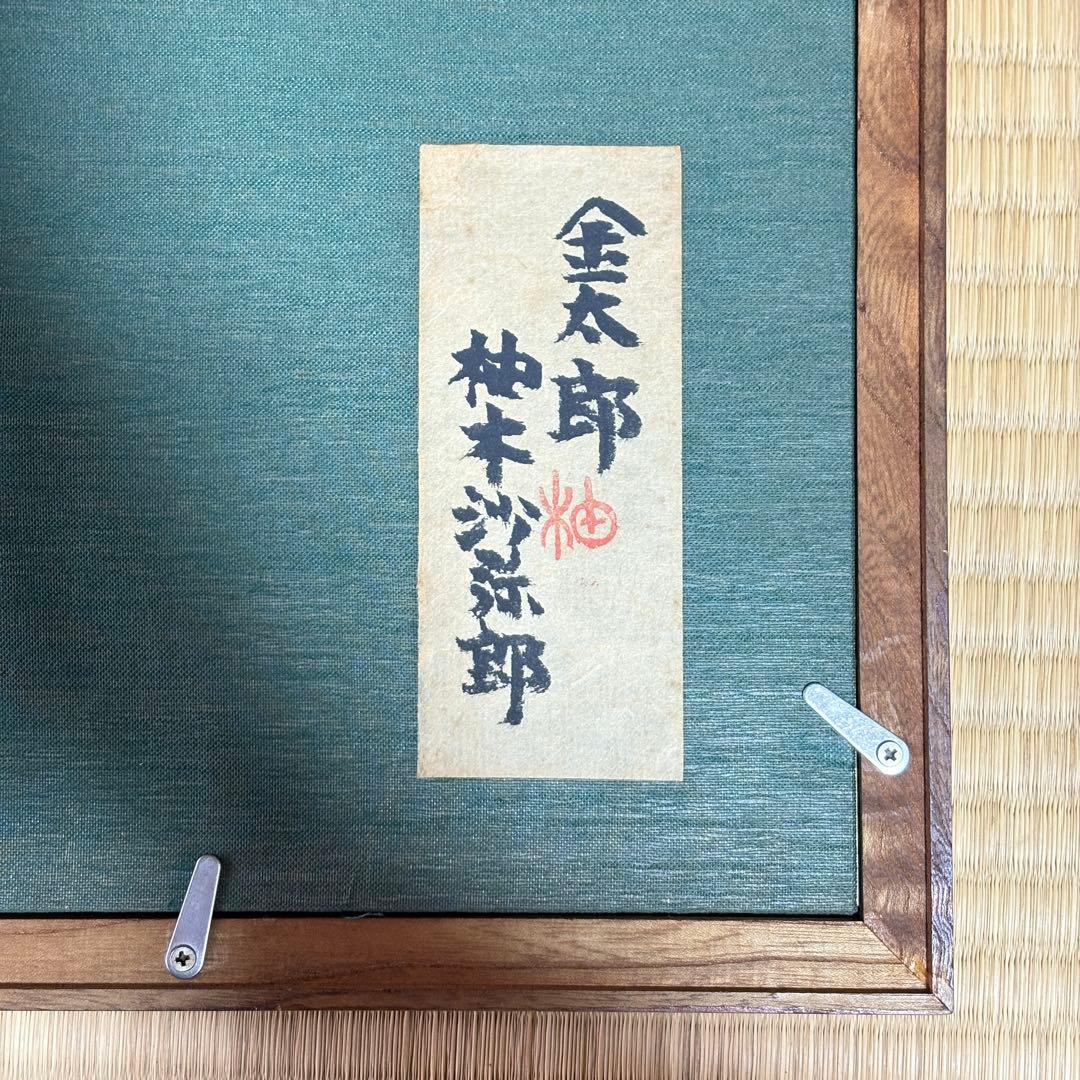 金太郎
柚木沙弥郎
柚